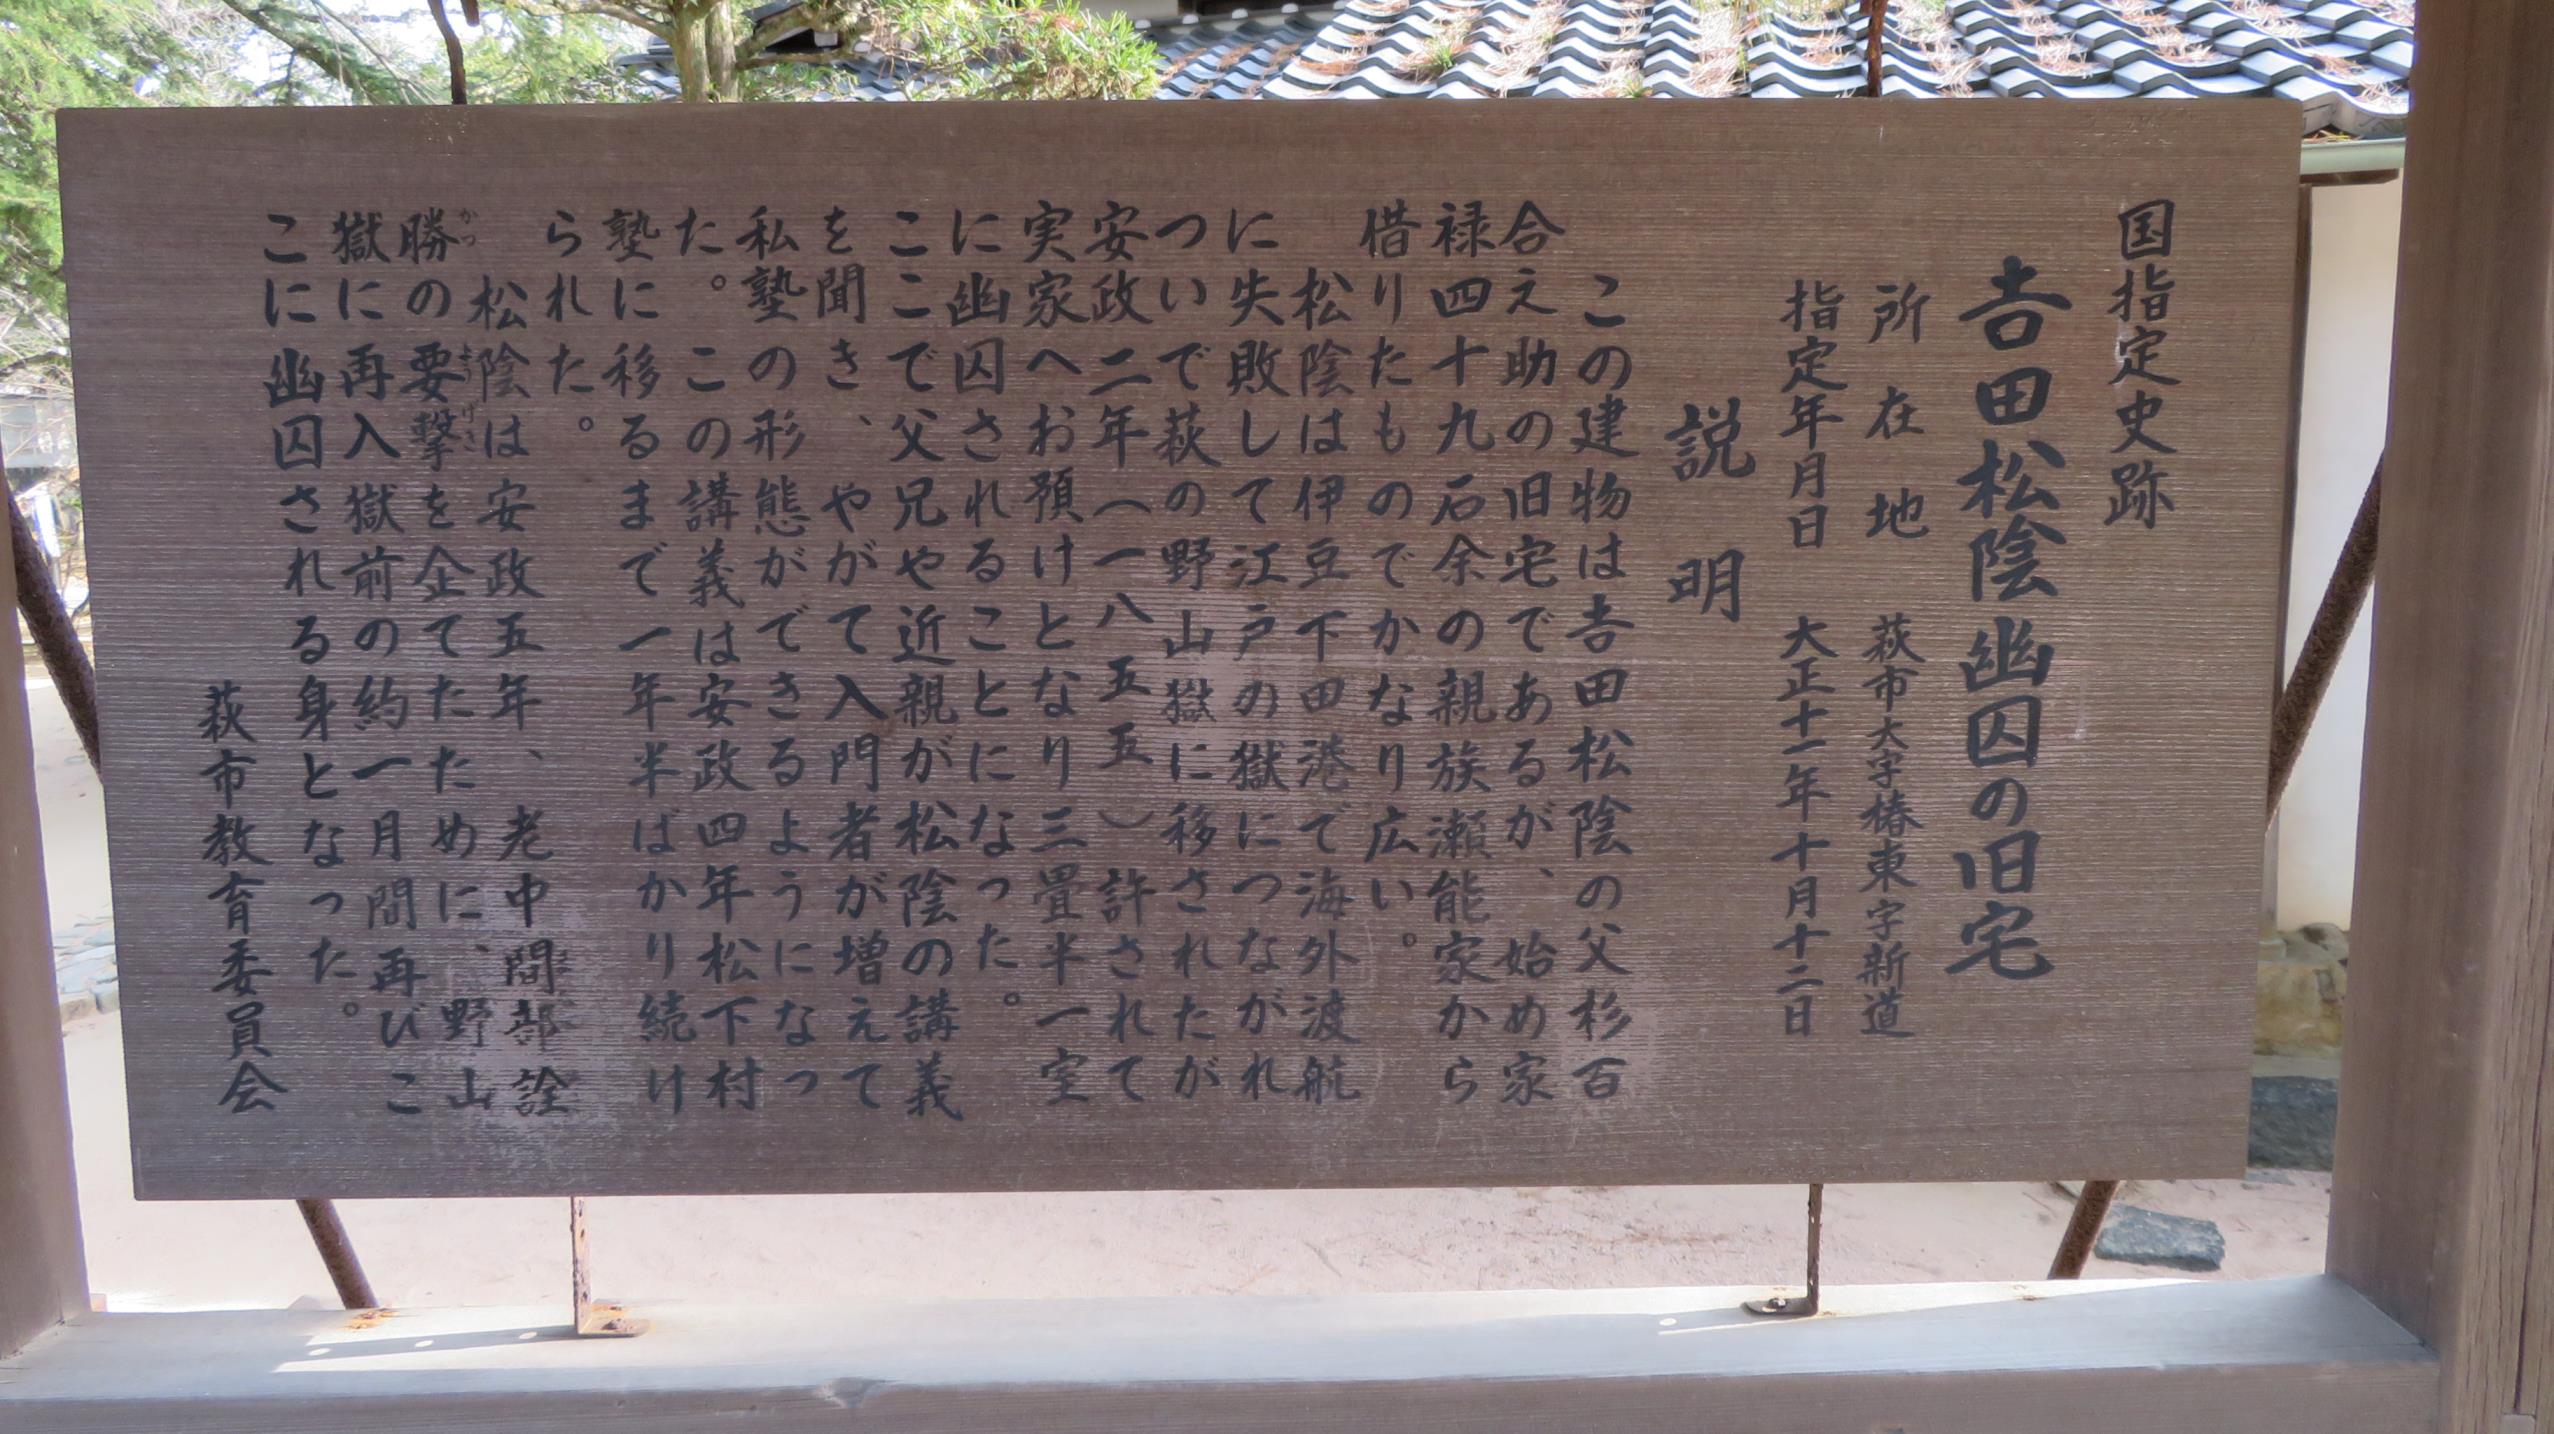 国指定史跡
吉田松陰幽囚の旧宅
所在地 萩市大字椿東字新道
指定年月日 大正十一年十月十二日
説明
この建物は吉田松陰の父杉百
合之助の旧宅であるが、始め家
禄四十九石余の親族瀬能家から
借りたものでかなり広い。
松陰は伊豆下田港で海外渡航
に失敗して江戸の獄につながれ
ついで萩の野山獄に移されたが
安政二年(一八五五)許されて
実家へお預けとなり三畳半一室
に幽囚されることになった。
ここで父兄や近親が松陰の講義
を聞き、やがて入門者が増えて
私塾の形態ができるようになっ
た。この講義は安政四年松下村
塾に移るまで一年半ばかり続け
られた。
松陰は安政五年、老中間部詮
勝の要撃を企てたために、野山
かつ ようげき
獄に再入獄前の約一月間再びこ
こに幽囚される身となった。
萩市教育委員会